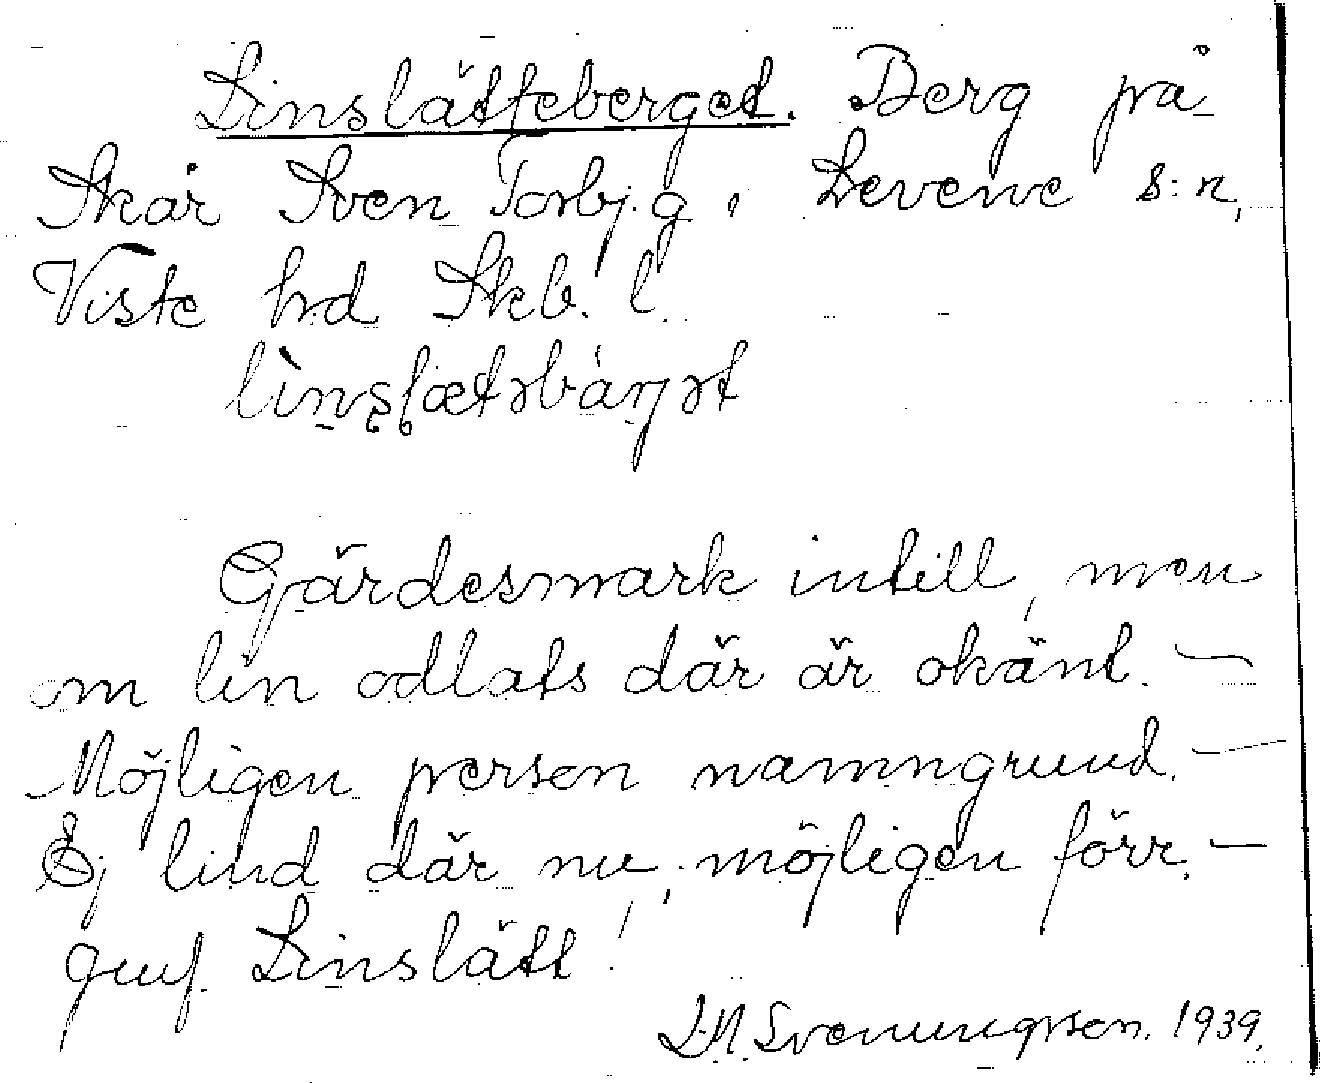 Linslätteberget. Berg på
Skår Sven Torbj.g, Levene s:n,
Viste hd Skb. l.
Gärdesmark intill, men
om lin odlats där är okänt. —
Möjligen person namngrund. —
Ej lind där nu, möjligen förr. —
Linslätt!
1939.